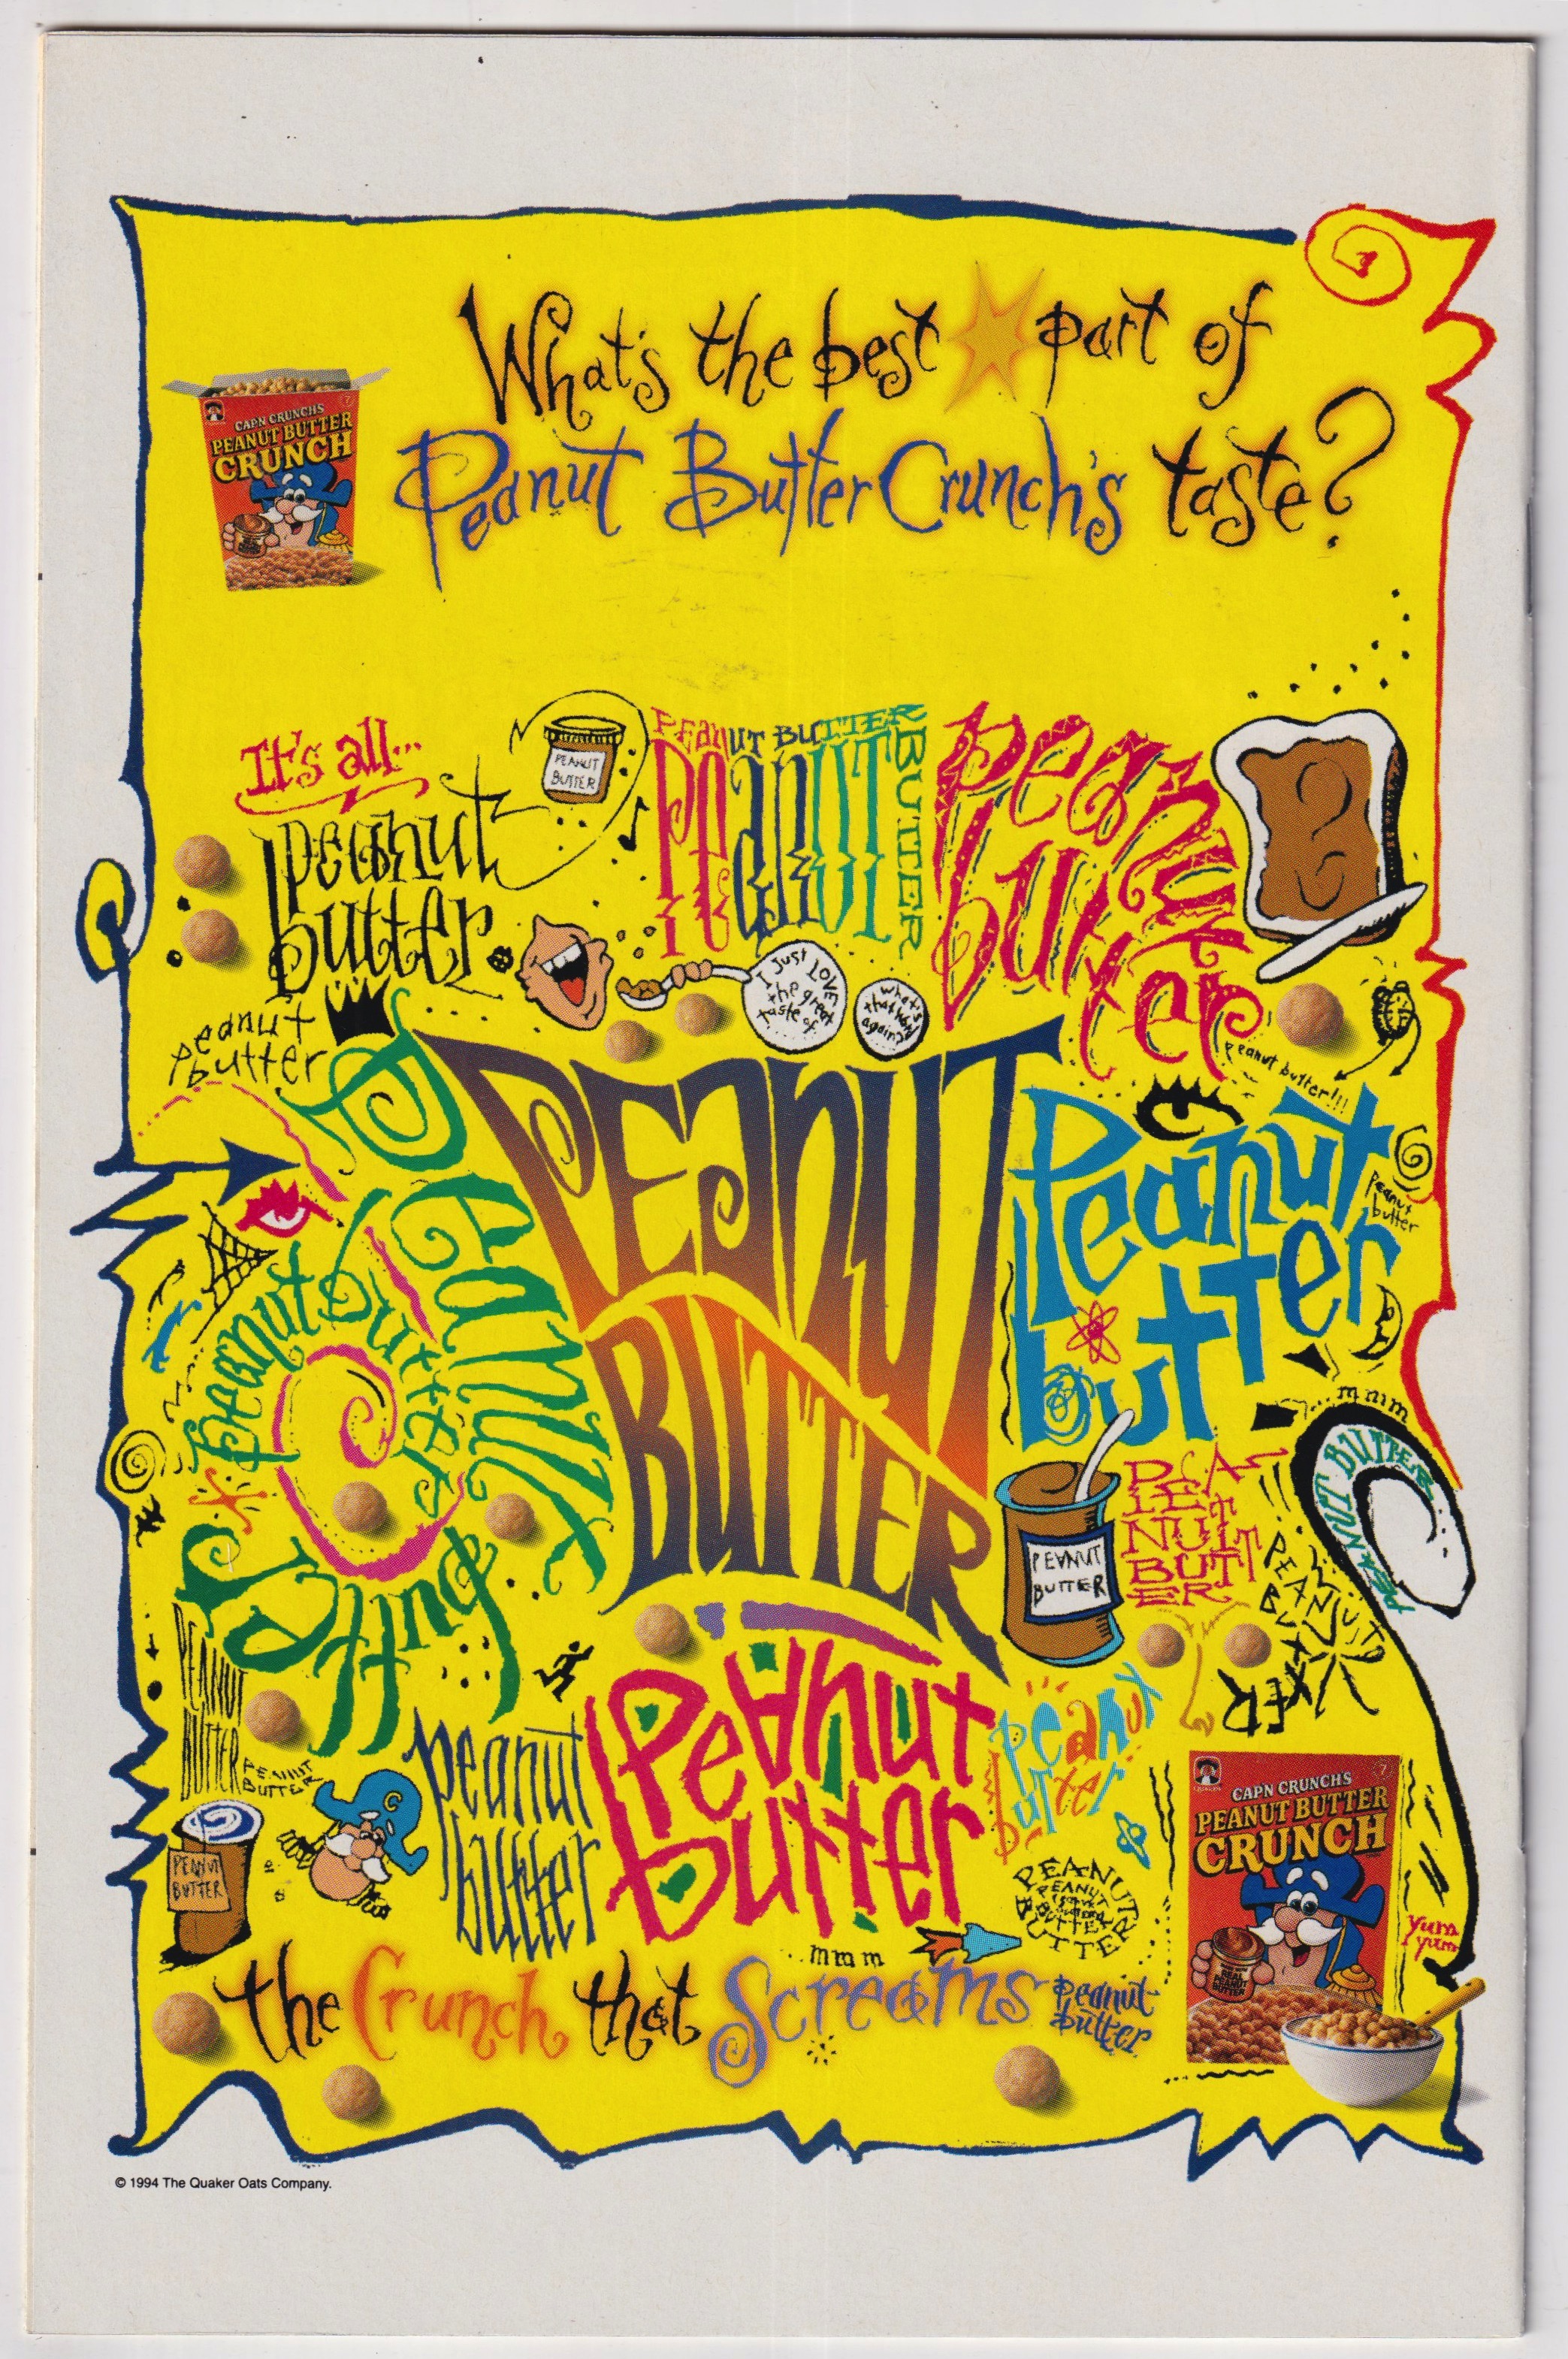 What's the best part of
Peanut Butter Crunch's taste?
CAP'N CRUNCH'S
PEANUT BUTTER
CRUNCH
It's all...
peanut
butter
PEANUT
BUTTER
PEANUT BUTTER
PEANUT
BUTTER
peanut
butter
peanut
butter
I Just LOVE
the great
taste of
what's
that word
again?
peanut butter!!!
Peanut
butter
PEANUT
BUTTER
Peanut
butter
peanut
butter
peanut butter
mmm
PEANUT BUTTER
PEANUT
BUTTER
PEA
NUT
BUTT
ER
PEANUT
BUTTER
PEANUT
BUTTER
PEANUT
BUTTER
peanut
butter
Peanut
butter
peanut
butter
PEANUT
BUTTER
PEANUT
BUTTER
C
mmm
CAP'N CRUNCH'S
PEANUT BUTTER
CRUNCH
REAL
PEANUT
BUTTER
yum
yum
the Crunch that Screams peanut
butter
© 1994 The Quaker Oats Company.